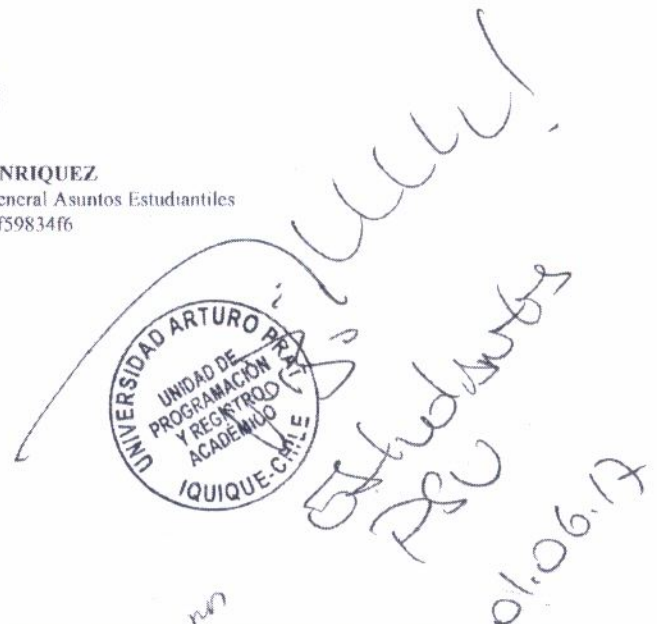 NRIQUEZ
eneral Asuntos Estudiantiles
f59834f6
UNIVERSIDAD ARTURO PRAT
UNIDAD DE
PROGRAMACIÓN
Y REGISTRO
ACADÉMICO
IQUIQUE-CHILE
Estudiantes
PSU
01.06.17